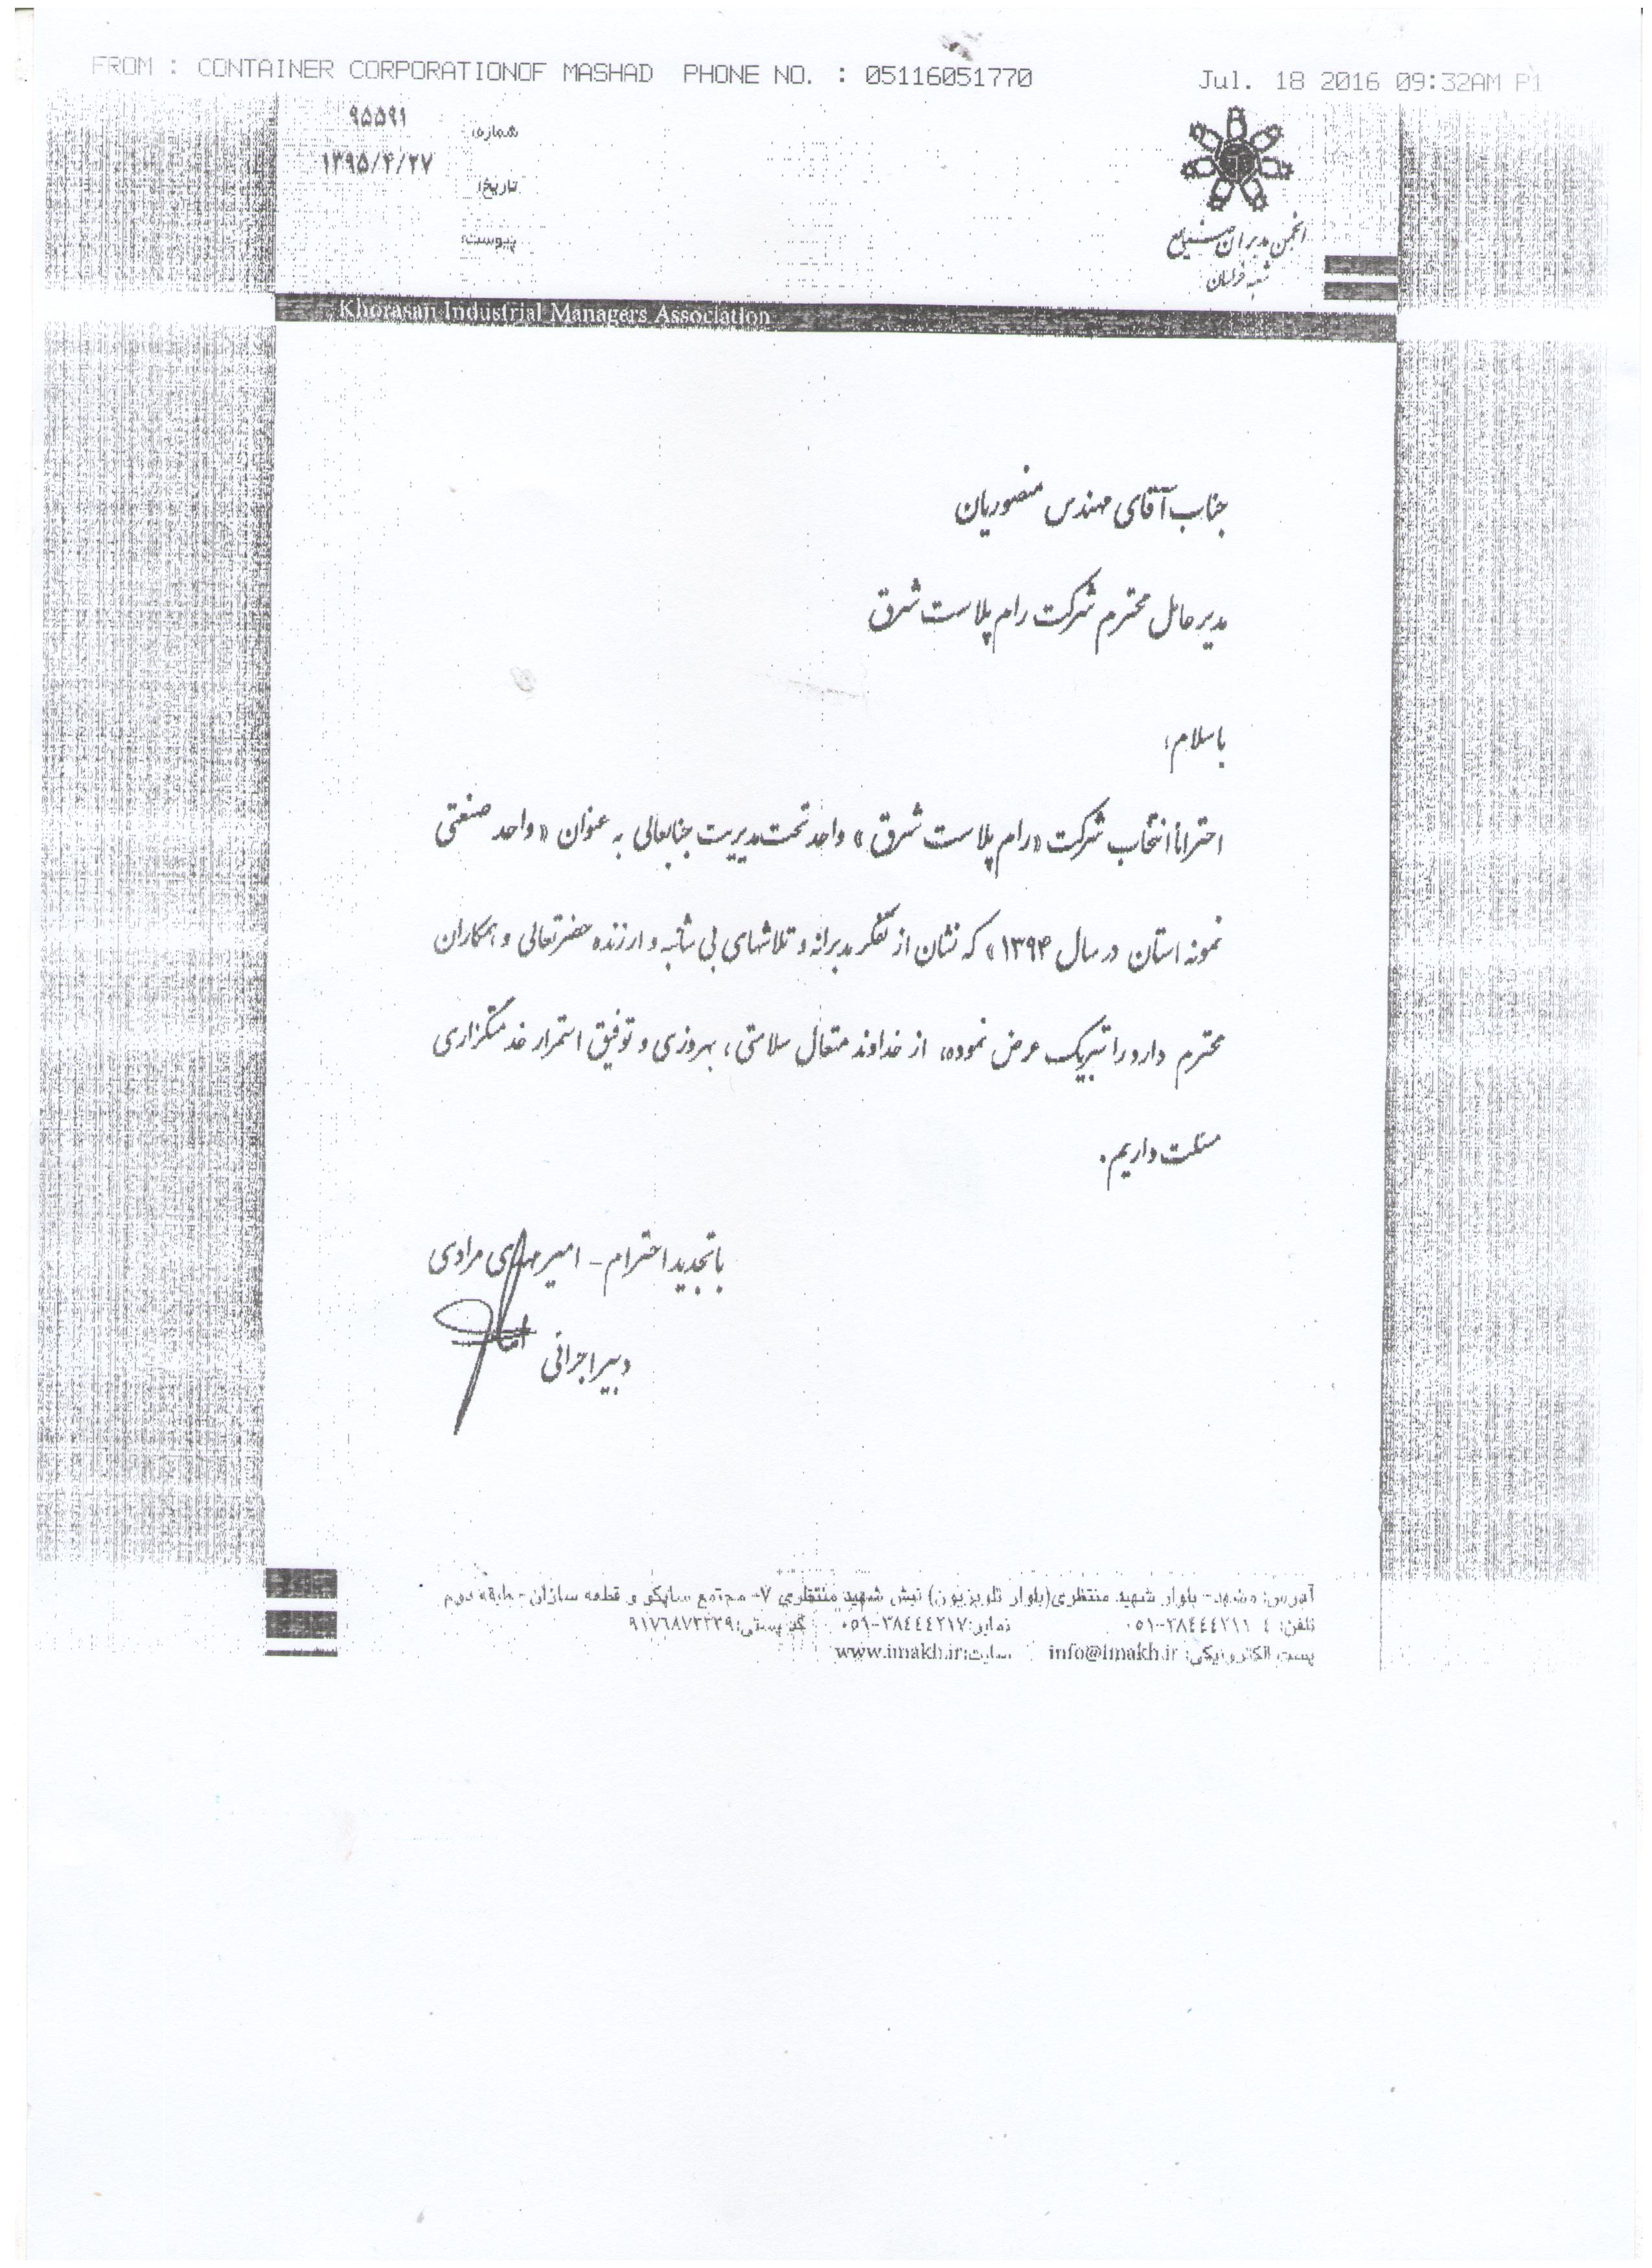 FROM : CONTAINER CORPORATIONOF MASHAD PHONE NO. : 05116051770 Jul. 18 2016 09:32AM P1
شماره: ۹۵۵۹۱
تاریخ: ۱۳۹۵/۴/۲۷
پیوست:
انجمن مدیران صنایع
شعبه خراسان
Khorasan Industrial Managers Association
جناب آقای مهندس منصوریان
مدیرعامل محترم شرکت رام پلاست شرق
با سلام؛
احتراماً انتخاب شرکت «رام پلاست شرق» واحد تحت مدیریت جنابعالی به عنوان «واحد صنعتی
نمونه استان در سال ۱۳۹۴» که نشان از تفکر مدبرانه و تلاشهای بی شائبه و ارزنده حضرتعالی و همکاران
محترم دارد را تبریک عرض نموده، از خداوند متعال سلامتی، بهروزی و توفیق استمرار خدمتگزاری
مسئلت داریم.
با تجدید احترام - امیرمهدی مرادی
دبیر اجرائی
آدرس: مشهد- بلوار شهید منتظری(بلوار تلویزیون) نبش شهید منتظری ۷- مجتمع ساپکو و قطعه سازان - طبقه دوم
تلفن: ۴ ۰۵۱-۳۸۴۴۴۲۱۱ نمابر: ۰۵۱-۳۸۴۴۴۲۱۷ کد پستی: ۹۱۷۶۸۷۳۳۳۹
پست الکترونیکی: info@imakh.ir سایت: www.imakh.ir